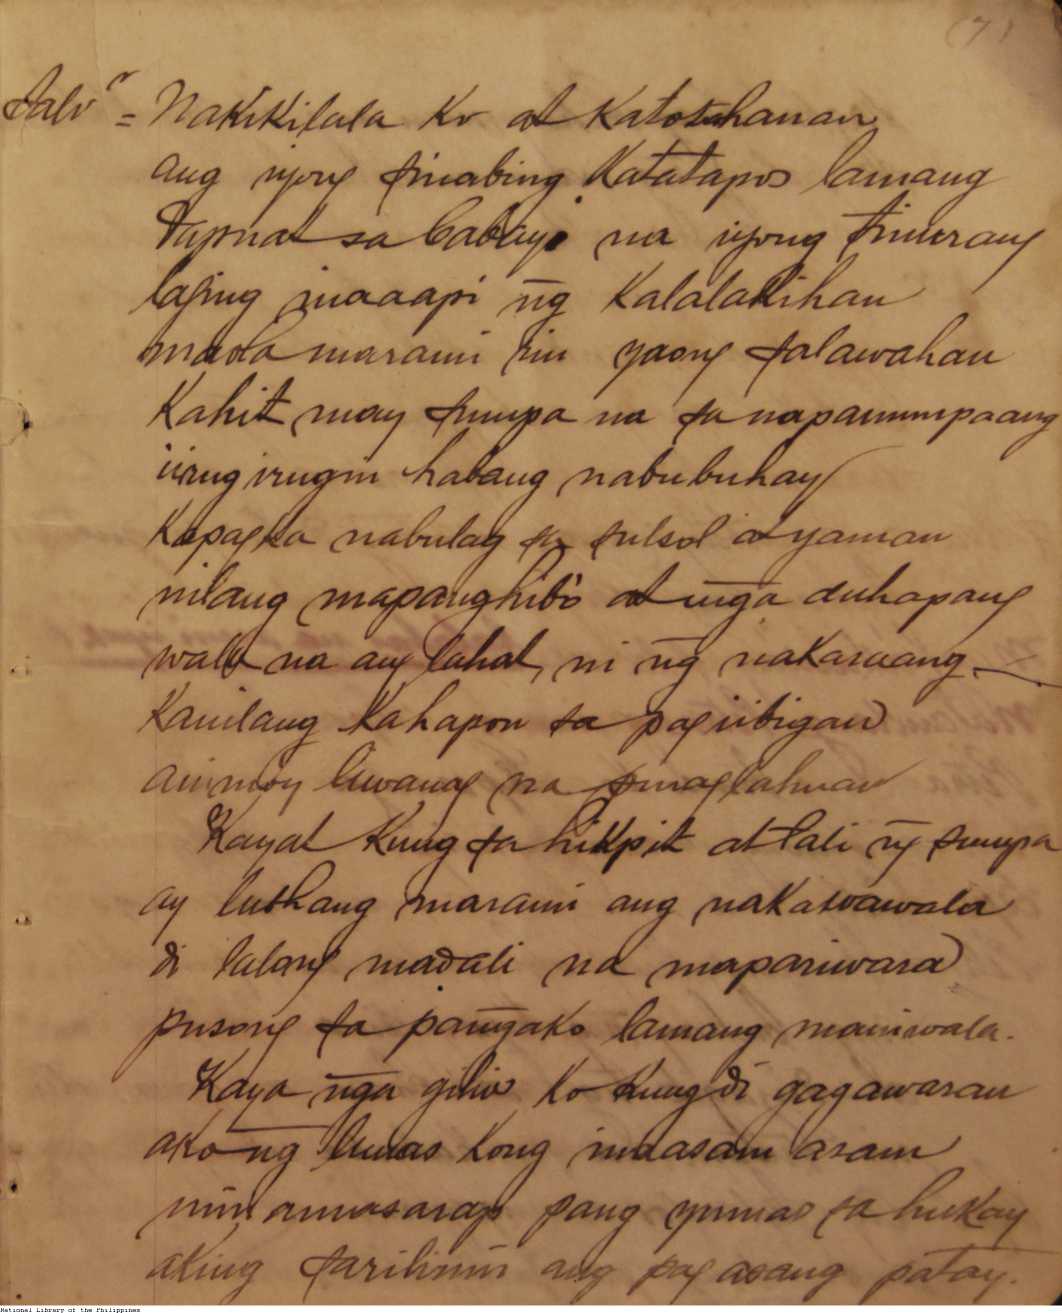 (7)
Salvr = Nakikilala ko at katotohanan
ang iyong sinabing katatapos lamang
Tapwat sa babayi na iyong tinuran
laging inaaapi ñg kalalakihan
marami rin yaong salawahan
Kahit may sumpa na sa napanumpaang
iirugirugin habang nabubuhay
Kapagka nabulag sa sulsol at yaman
nilang mapanghibo at mga duhapang
wala na ang lahat, ni ñg nakaraang
kanilang kahapon sa pagiibigan
liwanag na
Kayat kung sa hikpit at tali ñg sumpa
ay lubhang marami ang nakawawala
di lalong madali na mapariwara
pusong sa pañgako lamang maniwala.
Kaya ñga giliw ko kung di gagawaran
ako ñg lunas kong inaasam asam
pang pumas sa hukay
aking sarilinin ang pag asang patay.
National Library of the Philippines